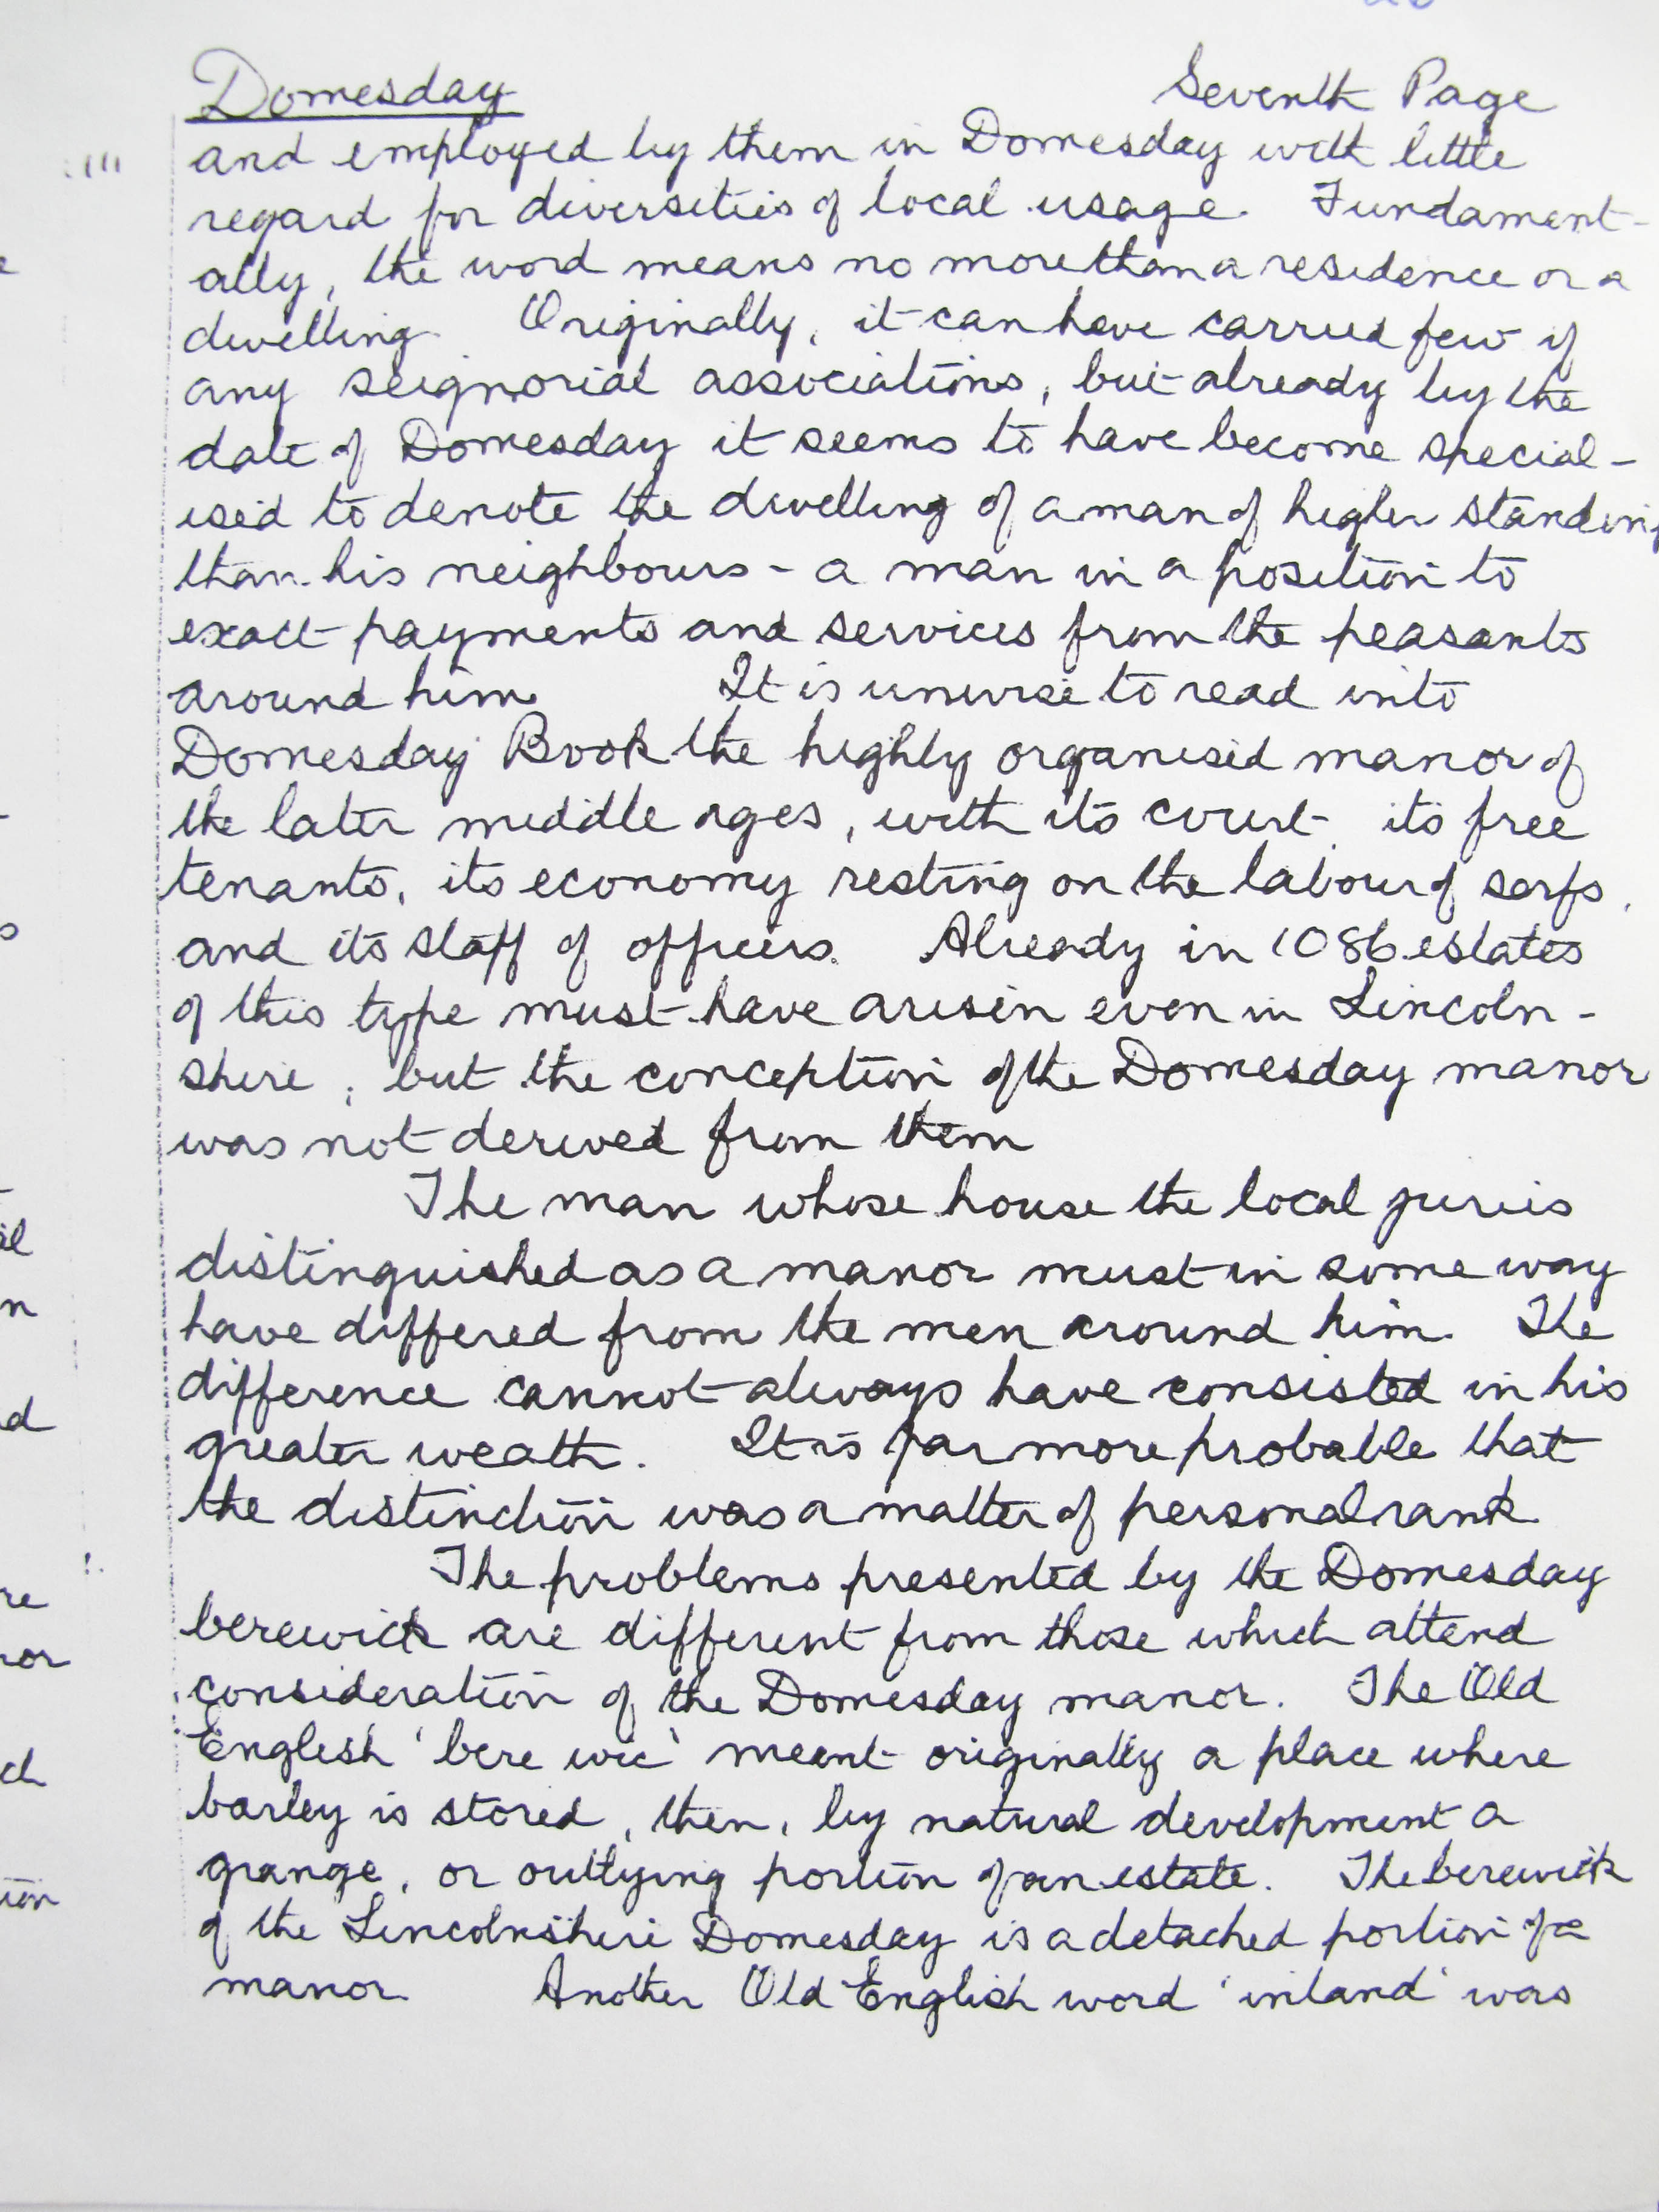 Domesday Seventh Page
and employed by them in Domesday with little
regard for diversities of local usage. Fundament-
ally, the word means no more than a residence or a
dwelling. Originally, it can have carried few if
any seignorial associations, but already by the
date of Domesday it seems to have become special-
ised to denote the dwelling of a man of higher standing
than his neighbours - a man in a position to
exact payments and services from the peasants
around him. It is unwise to read into
Domesday Book the highly organised manor of
the later middle ages, with its court, its free
tenants, its economy resting on the labour of serfs,
and its staff of officers. Already in 1086 estates
of this type must have arisen even in Lincoln-
shire, but the conception of the Domesday manor
was not derived from them
The man whose house the local juries
distinguished as a manor must in some way
have differed from the men around him. The
difference cannot always have consisted in his
greater wealth. It is far more probable that
the distinction was a matter of personal rank
The problems presented by the Domesday
berewick are different from those which attend
consideration of the Domesday manor. The Old
English 'bere wic' meant originally a place where
barley is stored, then, by natural development a
grange, or outlying portion of an estate. The berewick
of the Lincolnshire Domesday is a detached portion of a
manor. Another Old English word 'inland' was